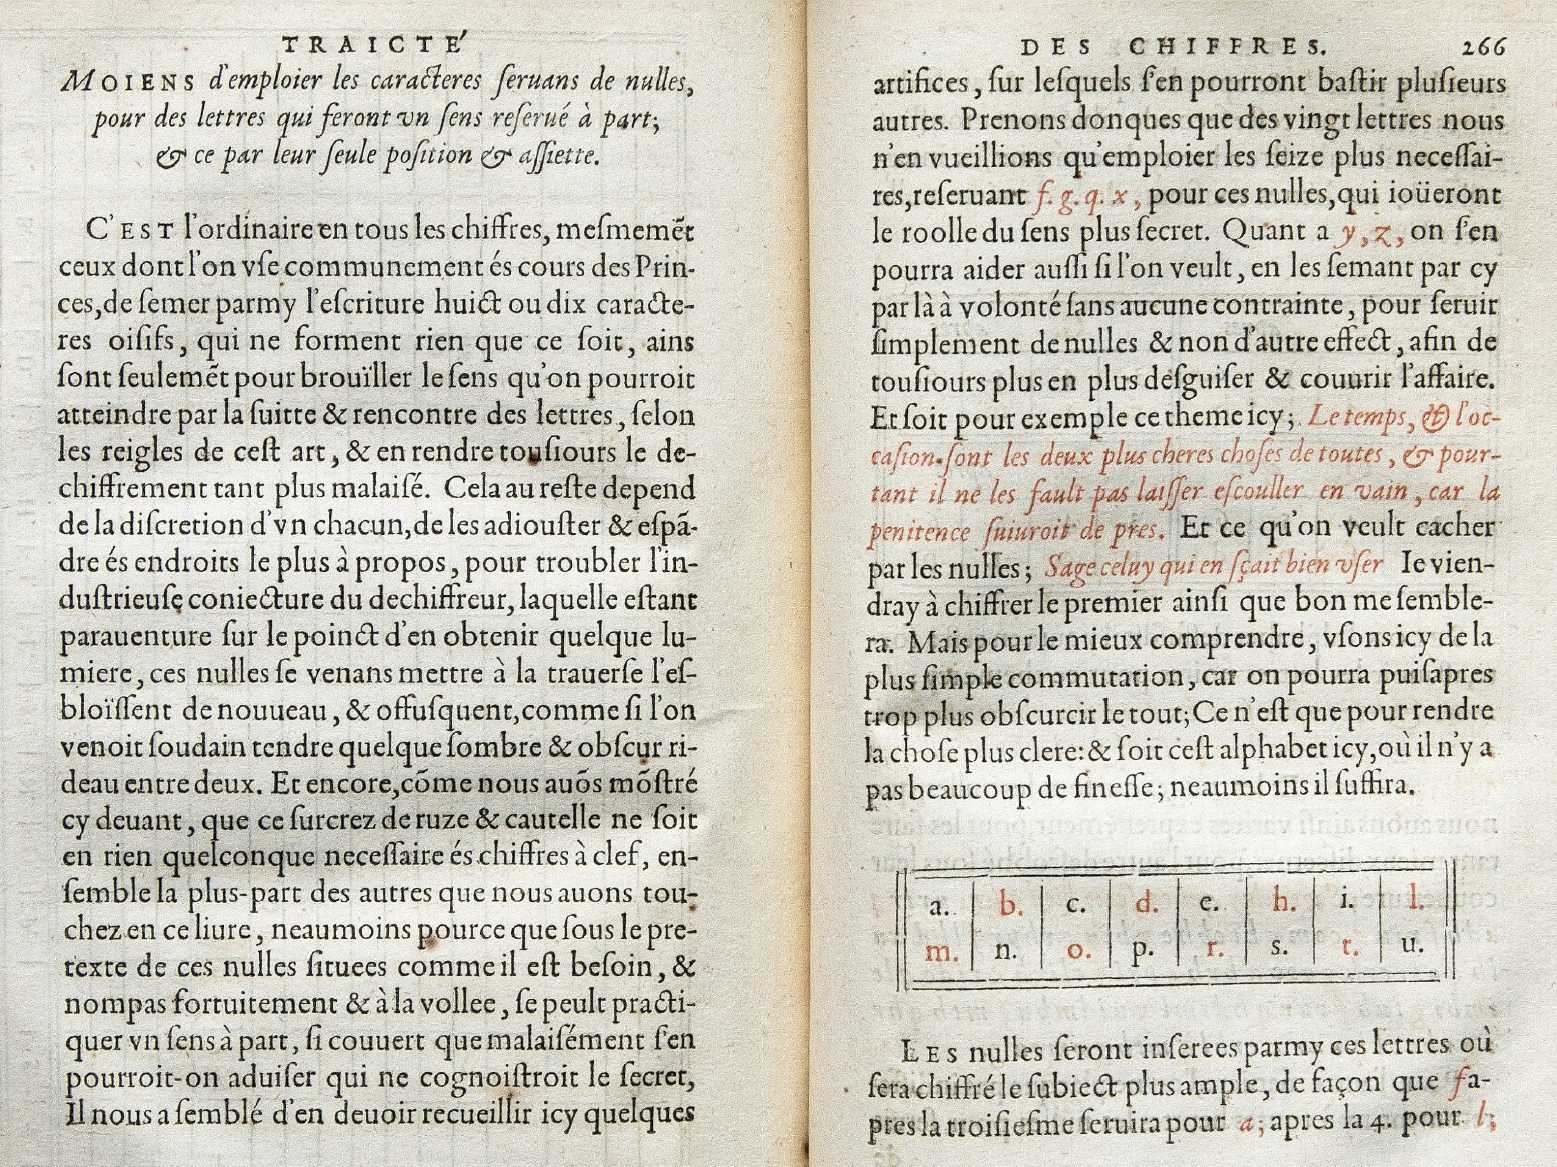 TRAICTE'
MOIENS d'emploier les caracteres ſeruans de nulles,
pour des lettres qui feront vn ſens reſerué à part;
& ce par leur ſeule poſition & aſſiette.
C'EST l'ordinaire en tous les chiffres, meſmemēt
ceux dont l'on vſe communement és cours des Prin-
ces, de ſemer parmy l'eſcriture huict ou dix caracte-
res oiſifs, qui ne forment rien que ce ſoit, ains
ſont ſeulemēt pour brouïller le ſens qu'on pourroit
atteindre par la ſuitte & rencontre des lettres, ſelon
les reigles de ceſt art, & en rendre touſiours le de-
chiffrement tant plus malaiſé. Cela au reſte depend
de la diſcretion d'vn chacun, de les adiouſter & eſpā-
dre és endroits le plus à propos, pour troubler l'in-
duſtrieuſe coniecture du dechiffreur, laquelle eſtant
parauenture ſur le poinct d'en obtenir quelque lu-
miere, ces nulles ſe venans mettre à la trauerſe l'eſ-
bloïſſent de nouueau, & offuſquent, comme ſi l'on
venoit ſoudain tendre quelque ſombre & obſcur ri-
deau entre deux. Et encore, cōme nous auōs mōſtré
cy deuant, que ce ſurcrez de ruze & cautelle ne ſoit
en rien quelconque neceſſaire és chiffres à clef, en-
ſemble la plus-part des autres que nous auons tou-
chez en ce liure, neaumoins pource que ſous le pre-
texte de ces nulles ſituees comme il eſt beſoin, &
nompas fortuitement & à la vollee, ſe peult practi-
quer vn ſens à part, ſi couuert que malaiſément s'en
pourroit-on aduiſer qui ne cognoiſtroit le ſecret,
Il nous a ſemblé d'en deuoir recueillir icy quelques
DES CHIFFRES. 266
artifices, ſur leſquels s'en pourront baſtir pluſieurs
autres. Prenons donques que des vingt lettres nous
n'en vueillions qu'emploier les ſeize plus neceſſai-
res, reſeruant f. g. q. x, pour ces nulles, qui ioüeront
le roolle du ſens plus ſecret. Quant a y, z, on s'en
pourra aider auſſi ſi l'on veult, en les ſemant par cy
par là à volonté ſans aucune contrainte, pour ſeruir
ſimplement de nulles & non d'autre effect, afin de
touſiours plus en plus deſguiſer & couurir l'affaire.
Et ſoit pour exemple ce theme icy; Le temps, & l'oc-
caſion ſont les deux plus cheres choſes de toutes, & pour-
tant il ne les fault pas laiſſer eſcouller en vain, car la
penitence ſuiuroit de pres. Et ce qu'on veult cacher
par les nulles; Sage celuy qui en ſçait bien vſer Ie vien-
dray à chiffrer le premier ainſi que bon me ſemble-
ra. Mais pour le mieux comprendre, vſons icy de la
plus ſimple commutation, car on pourra puiſapres
trop plus obſcurcir le tout; Ce n'eſt que pour rendre
la choſe plus clere: & ſoit ceſt alphabet icy, où il n'y a
pas beaucoup de fineſſe; neaumoins il ſuffira.
a. b. c. d. e. h. i. l.
m. n. o. p. r. s. t. u.
LES nulles ſeront inſerees parmy ces lettres où
ſera chiffré le ſubiect plus ample, de façon que f a-
pres la troiſieſme ſeruira pour a; apres la 4. pour l;